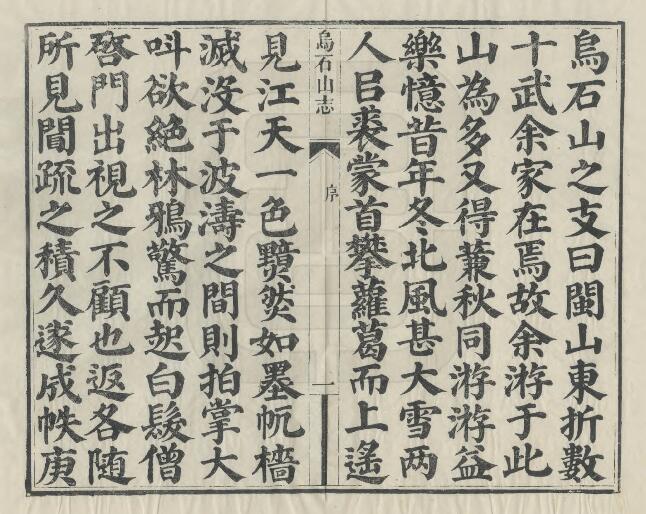 烏石山之支曰閩山東折數
十武余家在焉故余游于此
山為多又得蒹秋同游游益
樂憶昔年冬北風甚大雪两
人㠯裘蒙首攀蘿葛而上遙
烏石山志
序
一
見江天一色黯然如墨帆檣
滅没于波濤之間則拍掌大
呌欲絶林鴉驚而起白髮僧
啓門出視之不顧也返各随
所見聞疏之積久遂成帙庚